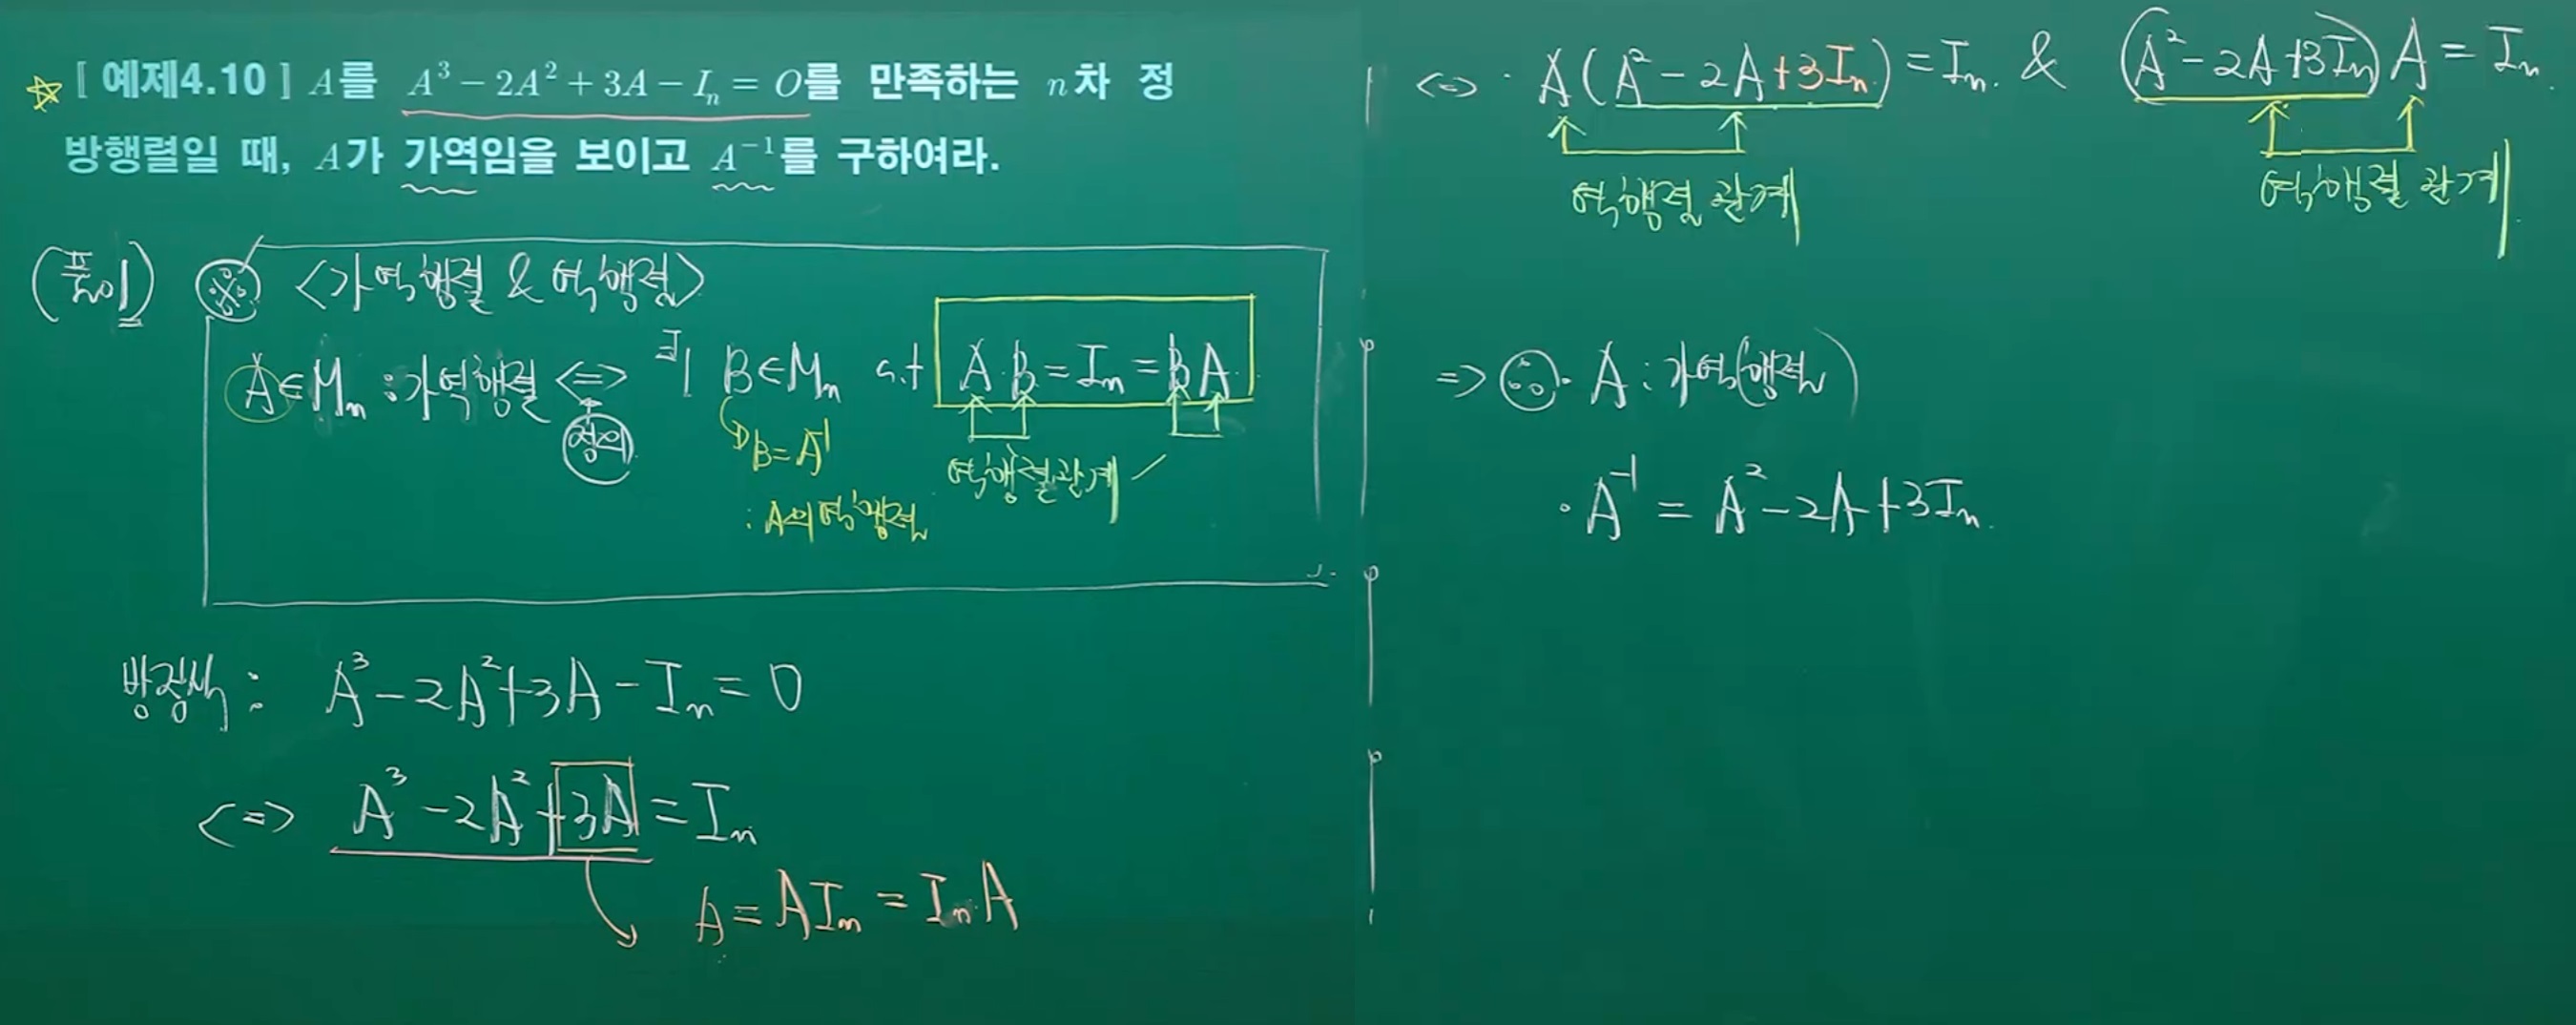 ☆ [ 예제4.10 ] A를 A³ − 2A² + 3A − Iₙ = O를 만족하는 n차 정
방행렬일 때, A가 가역임을 보이고 A⁻¹를 구하여라.
(풀이) ※ <가역행렬 & 역행렬>
A ∈ Mₙ : 가역행렬 <=> ∃| B ∈ Mₙ s.t A·B = Iₙ = BA
정의
B = A⁻¹
역행렬관계
: A의 역행렬
방정식 : A³ − 2A² + 3A − Iₙ = 0
<=> A³ − 2A² + 3A = Iₙ
A = AIₙ = IₙA
<=> · A(A² − 2A + 3Iₙ) = Iₙ. & (A² − 2A + 3Iₙ)A = Iₙ.
역행렬 관계 역행렬 관계
=> ∴ · A : 가역(행렬)
· A⁻¹ = A² − 2A + 3Iₙ.